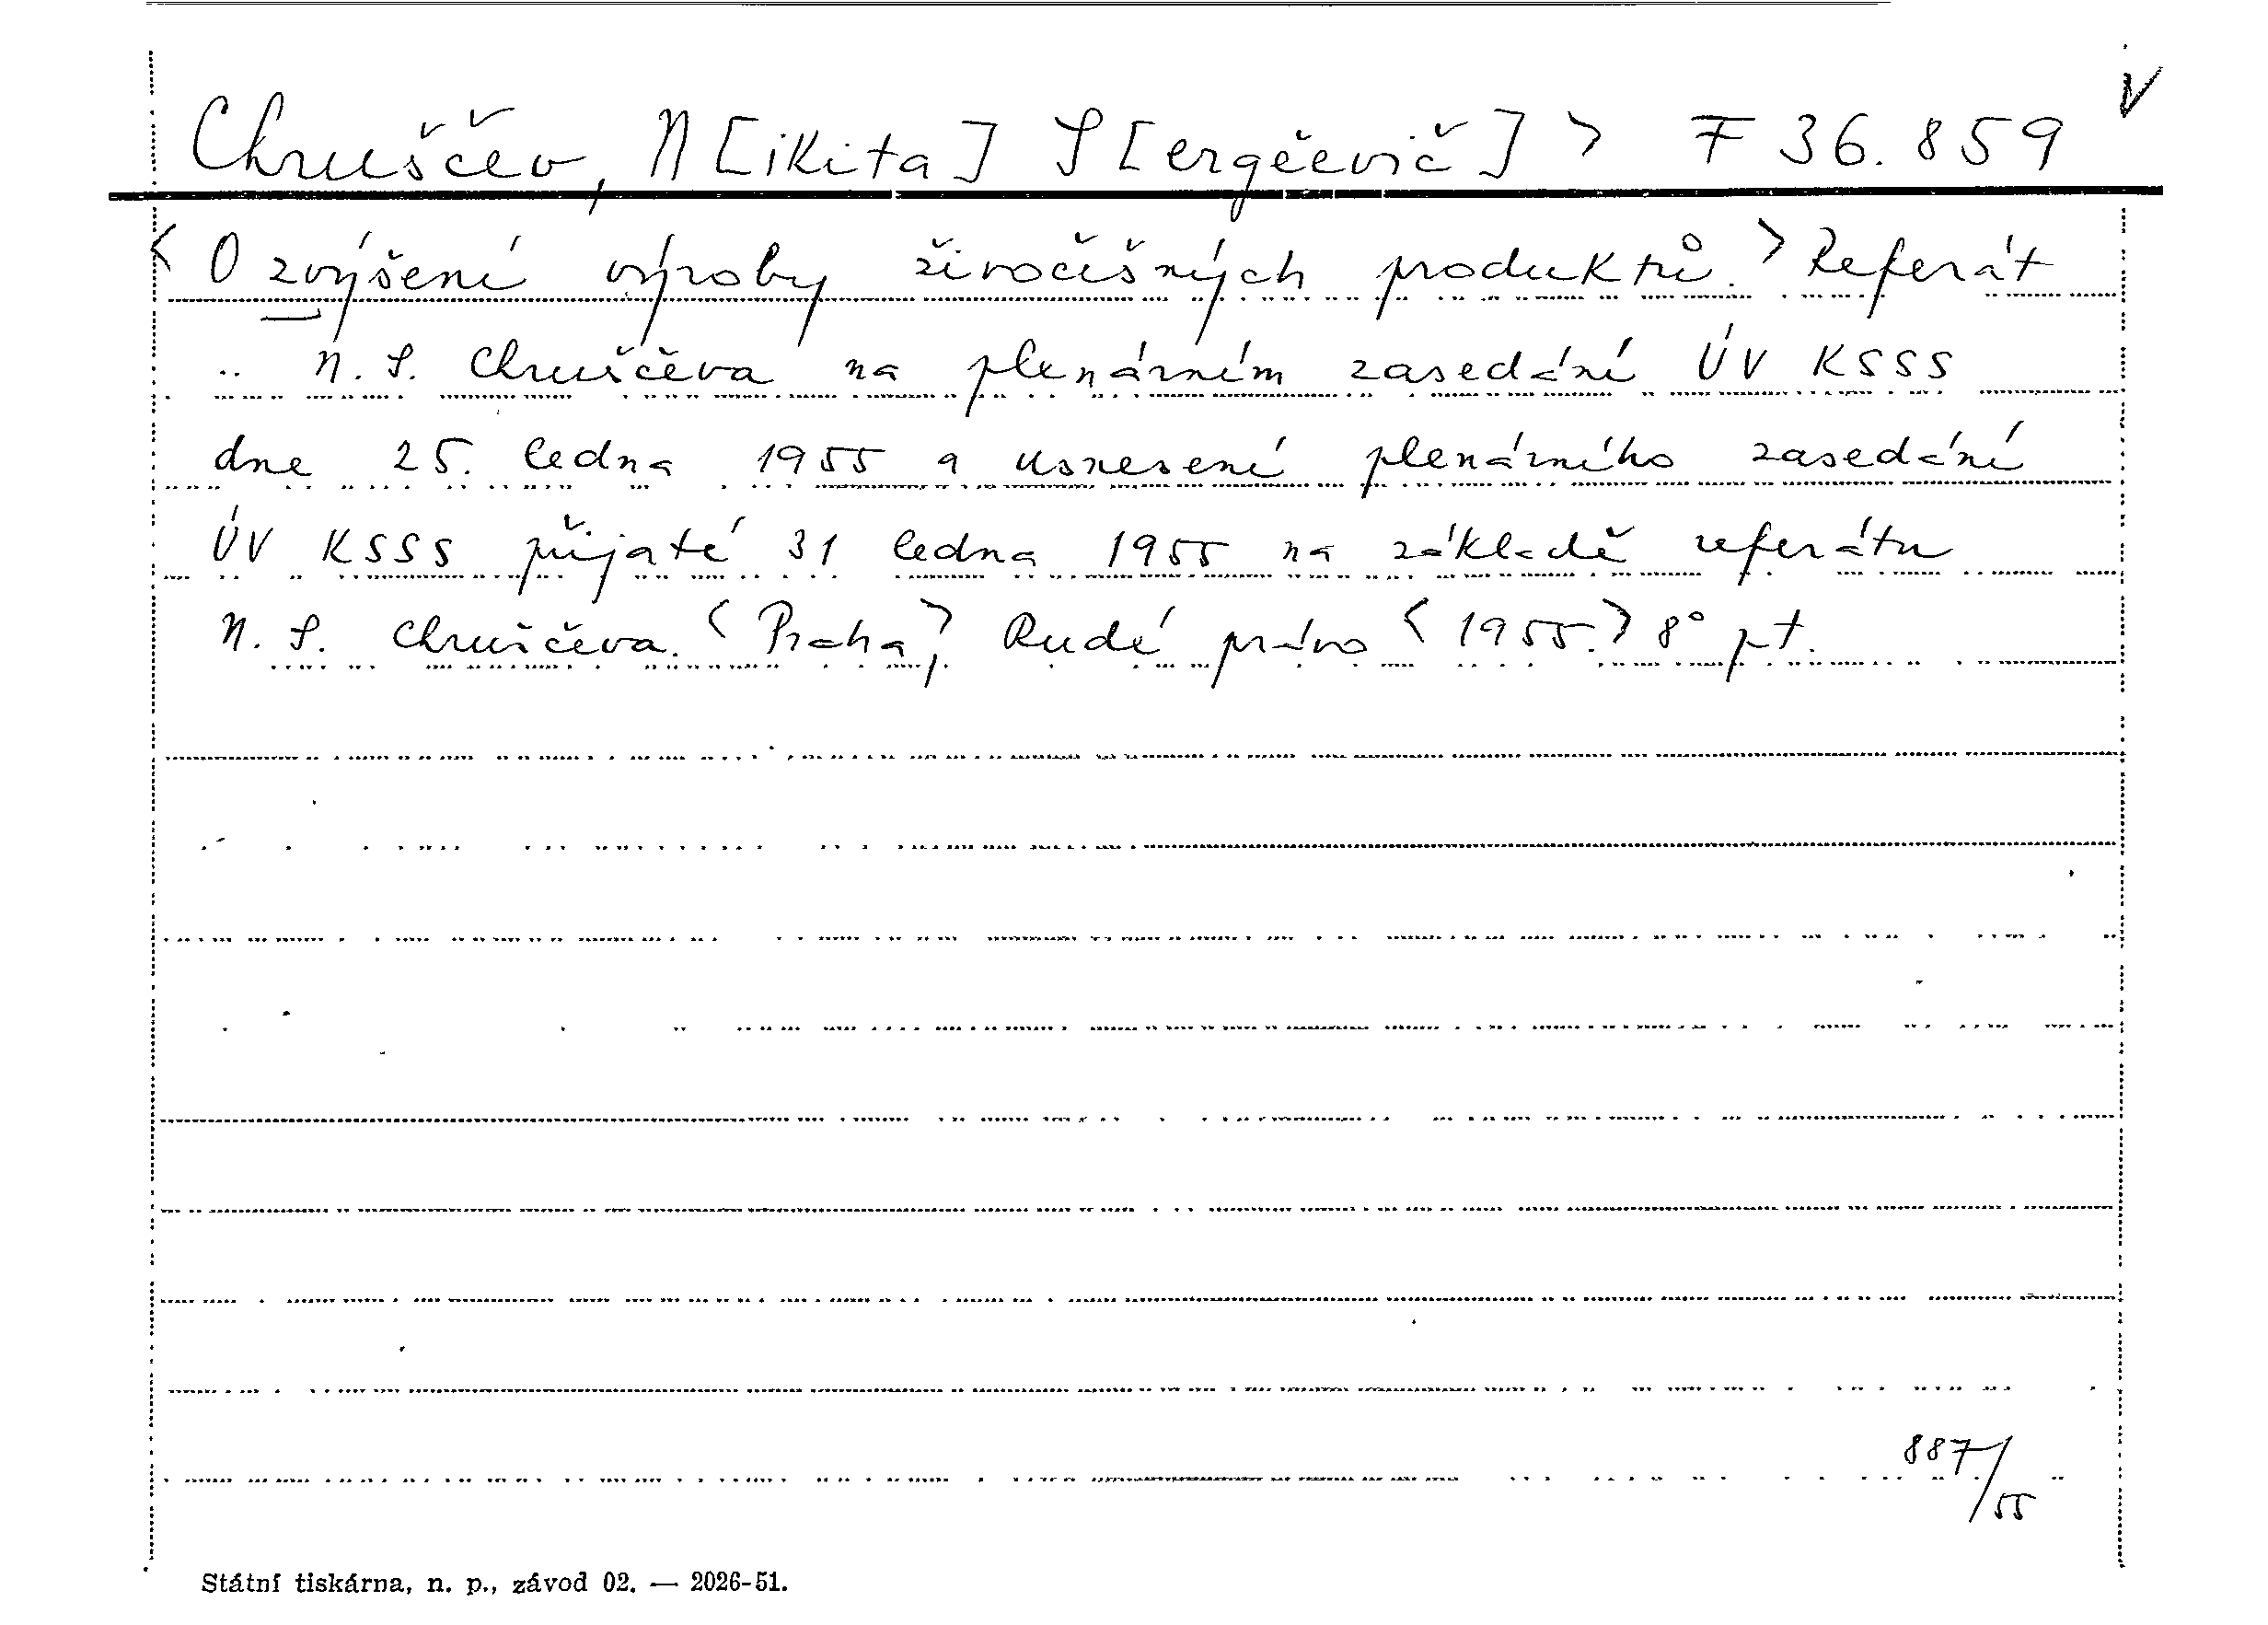 V
Chruščev, N[ikita] S[ergěevič] > F 36.859
<O zvýšení výroby živočišných produktů.> Referát
.. N. S. Chruščeva na plenárním zasedání ÚV KSSS
dne 25. ledna 1955 a usnesení plenárního zasedání
ÚV KSSS přijaté 31 ledna 1955 na základě referátu
N. S. Chruščeva. <Praha>, Rudé právo <1955.> 8° pt.
887/55
Státní tiskárna, n. p., závod 02. — 2026-51.